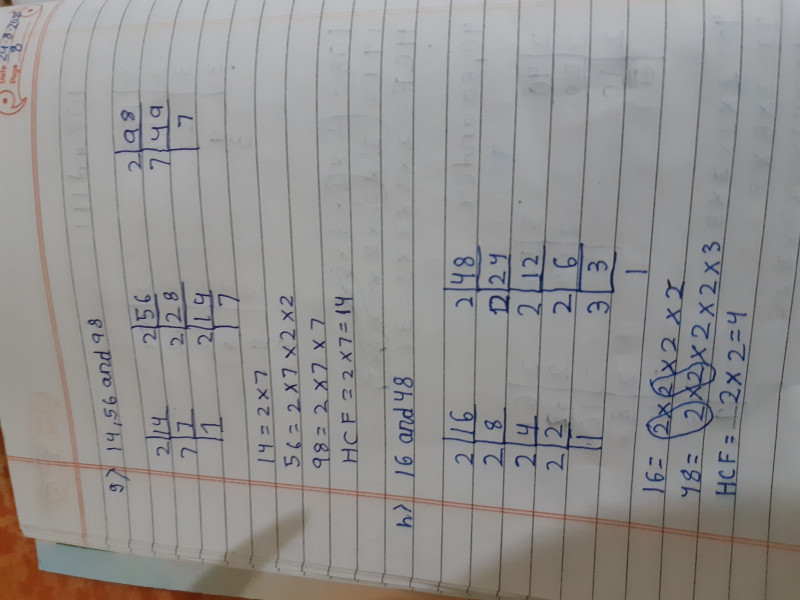 Date 24-8-202
Page 8
g) 14,56 and 98
2 14 2 56 2 98
7 7 2 28 7 49
1 2 14 7
7
14 = 2 × 7
56 = 2 × 7 × 2 × 2
98 = 2 × 7 × 7
HCF = 2 × 7 = 14
h) 16 and 48
2 16 2 48
2 8 2 24
2 4 2 12
2 2 2 6
1 3 3
1
16 = 2 × 2 × 2 × 2
48 = 2 × 2 × 2 × 2 × 3
HCF = 2 × 2 = 4